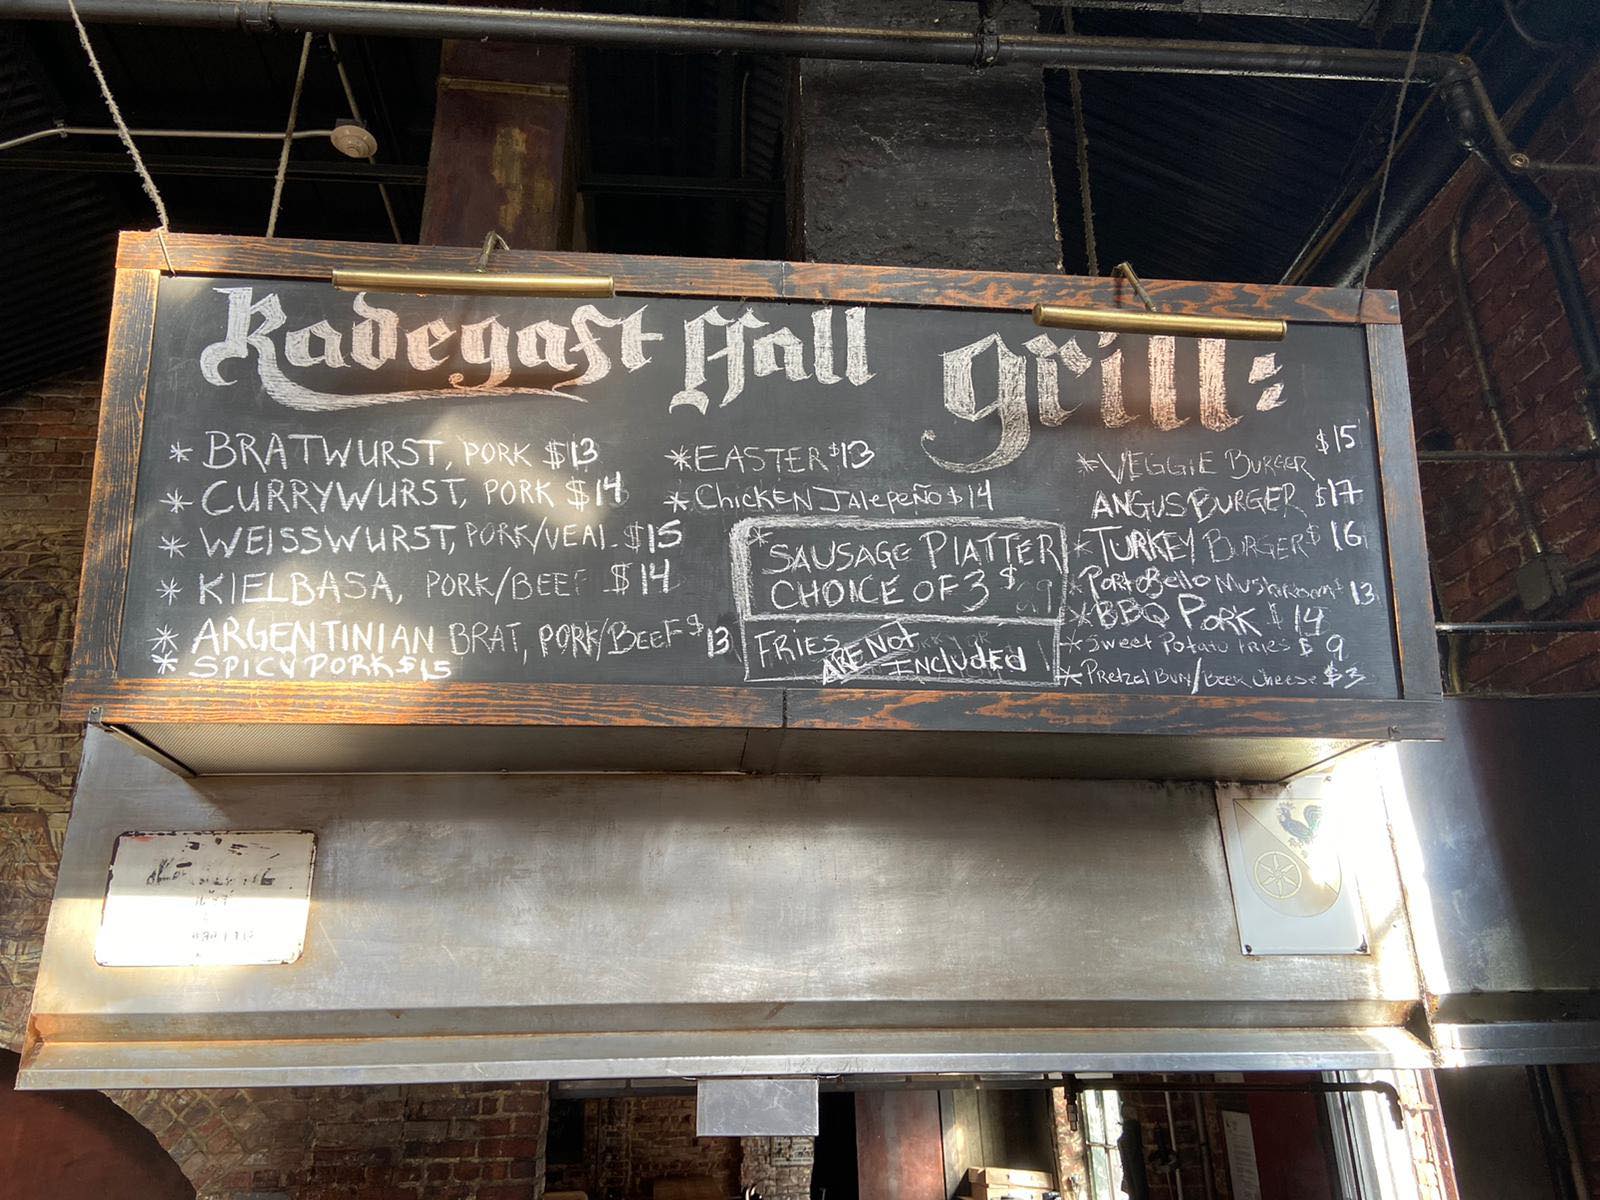 Radegast Hall grill:
* BRATWURST, PORK $13
* CURRYWURST, PORK $14
* WEISSWURST, PORK/VEAL $15
* KIELBASA, PORK/BEEF $14
* ARGENTINIAN BRAT, PORK/BEEF $13
* SPICY PORK $15
* EASTER $13
* CHICKEN JALEPEÑO $14
* SAUSAGE PLATTER
CHOICE OF 3 $
FRIES ARE NOT
INCLUDED
* VEGGIE BURGER $15
ANGUS BURGER $17
* TURKEY BURGER $16
* PORTOBELLO 13
* BBQ PORK $14
* SWEET POTATO FRIES $9
* PRETZEL BUN/BEER CHEESE $3